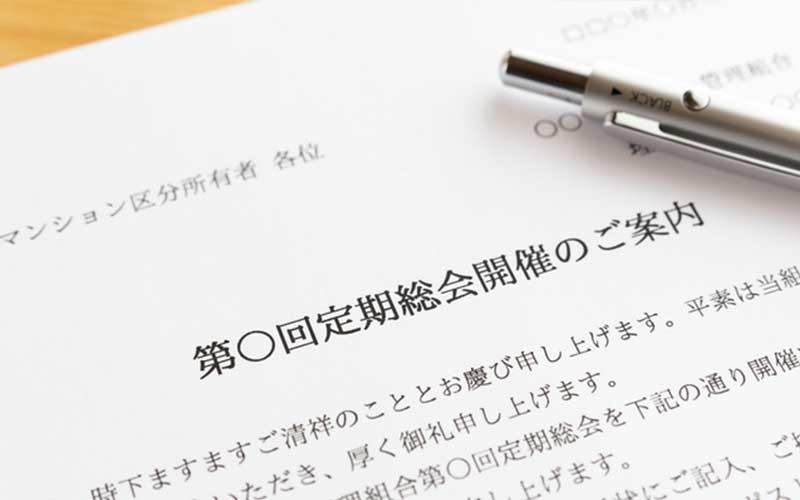 □□□年○月
管理組合
○○
マンション区分所有者 各位
第○回定期総会開催のご案内
時下ますますご清祥のこととお慶び申し上げます。平素は当組
いただき、厚く御礼申し上げます。
理組合第○回定期総会を下記の通り開催
申し上げます。
状にご記入、ご
BLACK